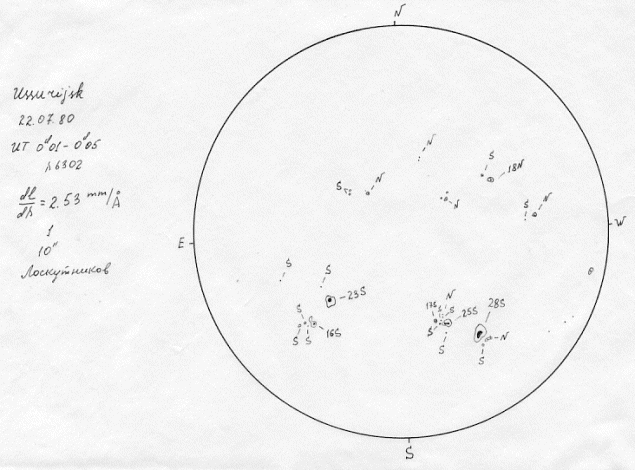 N
Ussurijsk
22.07.80
UT 0ᵈ01 - 0ᵈ05
λ 6302
dl/dλ = 2.53 mm/Å
1
10"
Лоскутников
N
S
18N
S
N
N
S
N
E
W
S
S
23S
S
16S
S
S
17S
N
S
S
25S
S
S
28S
N
S
S